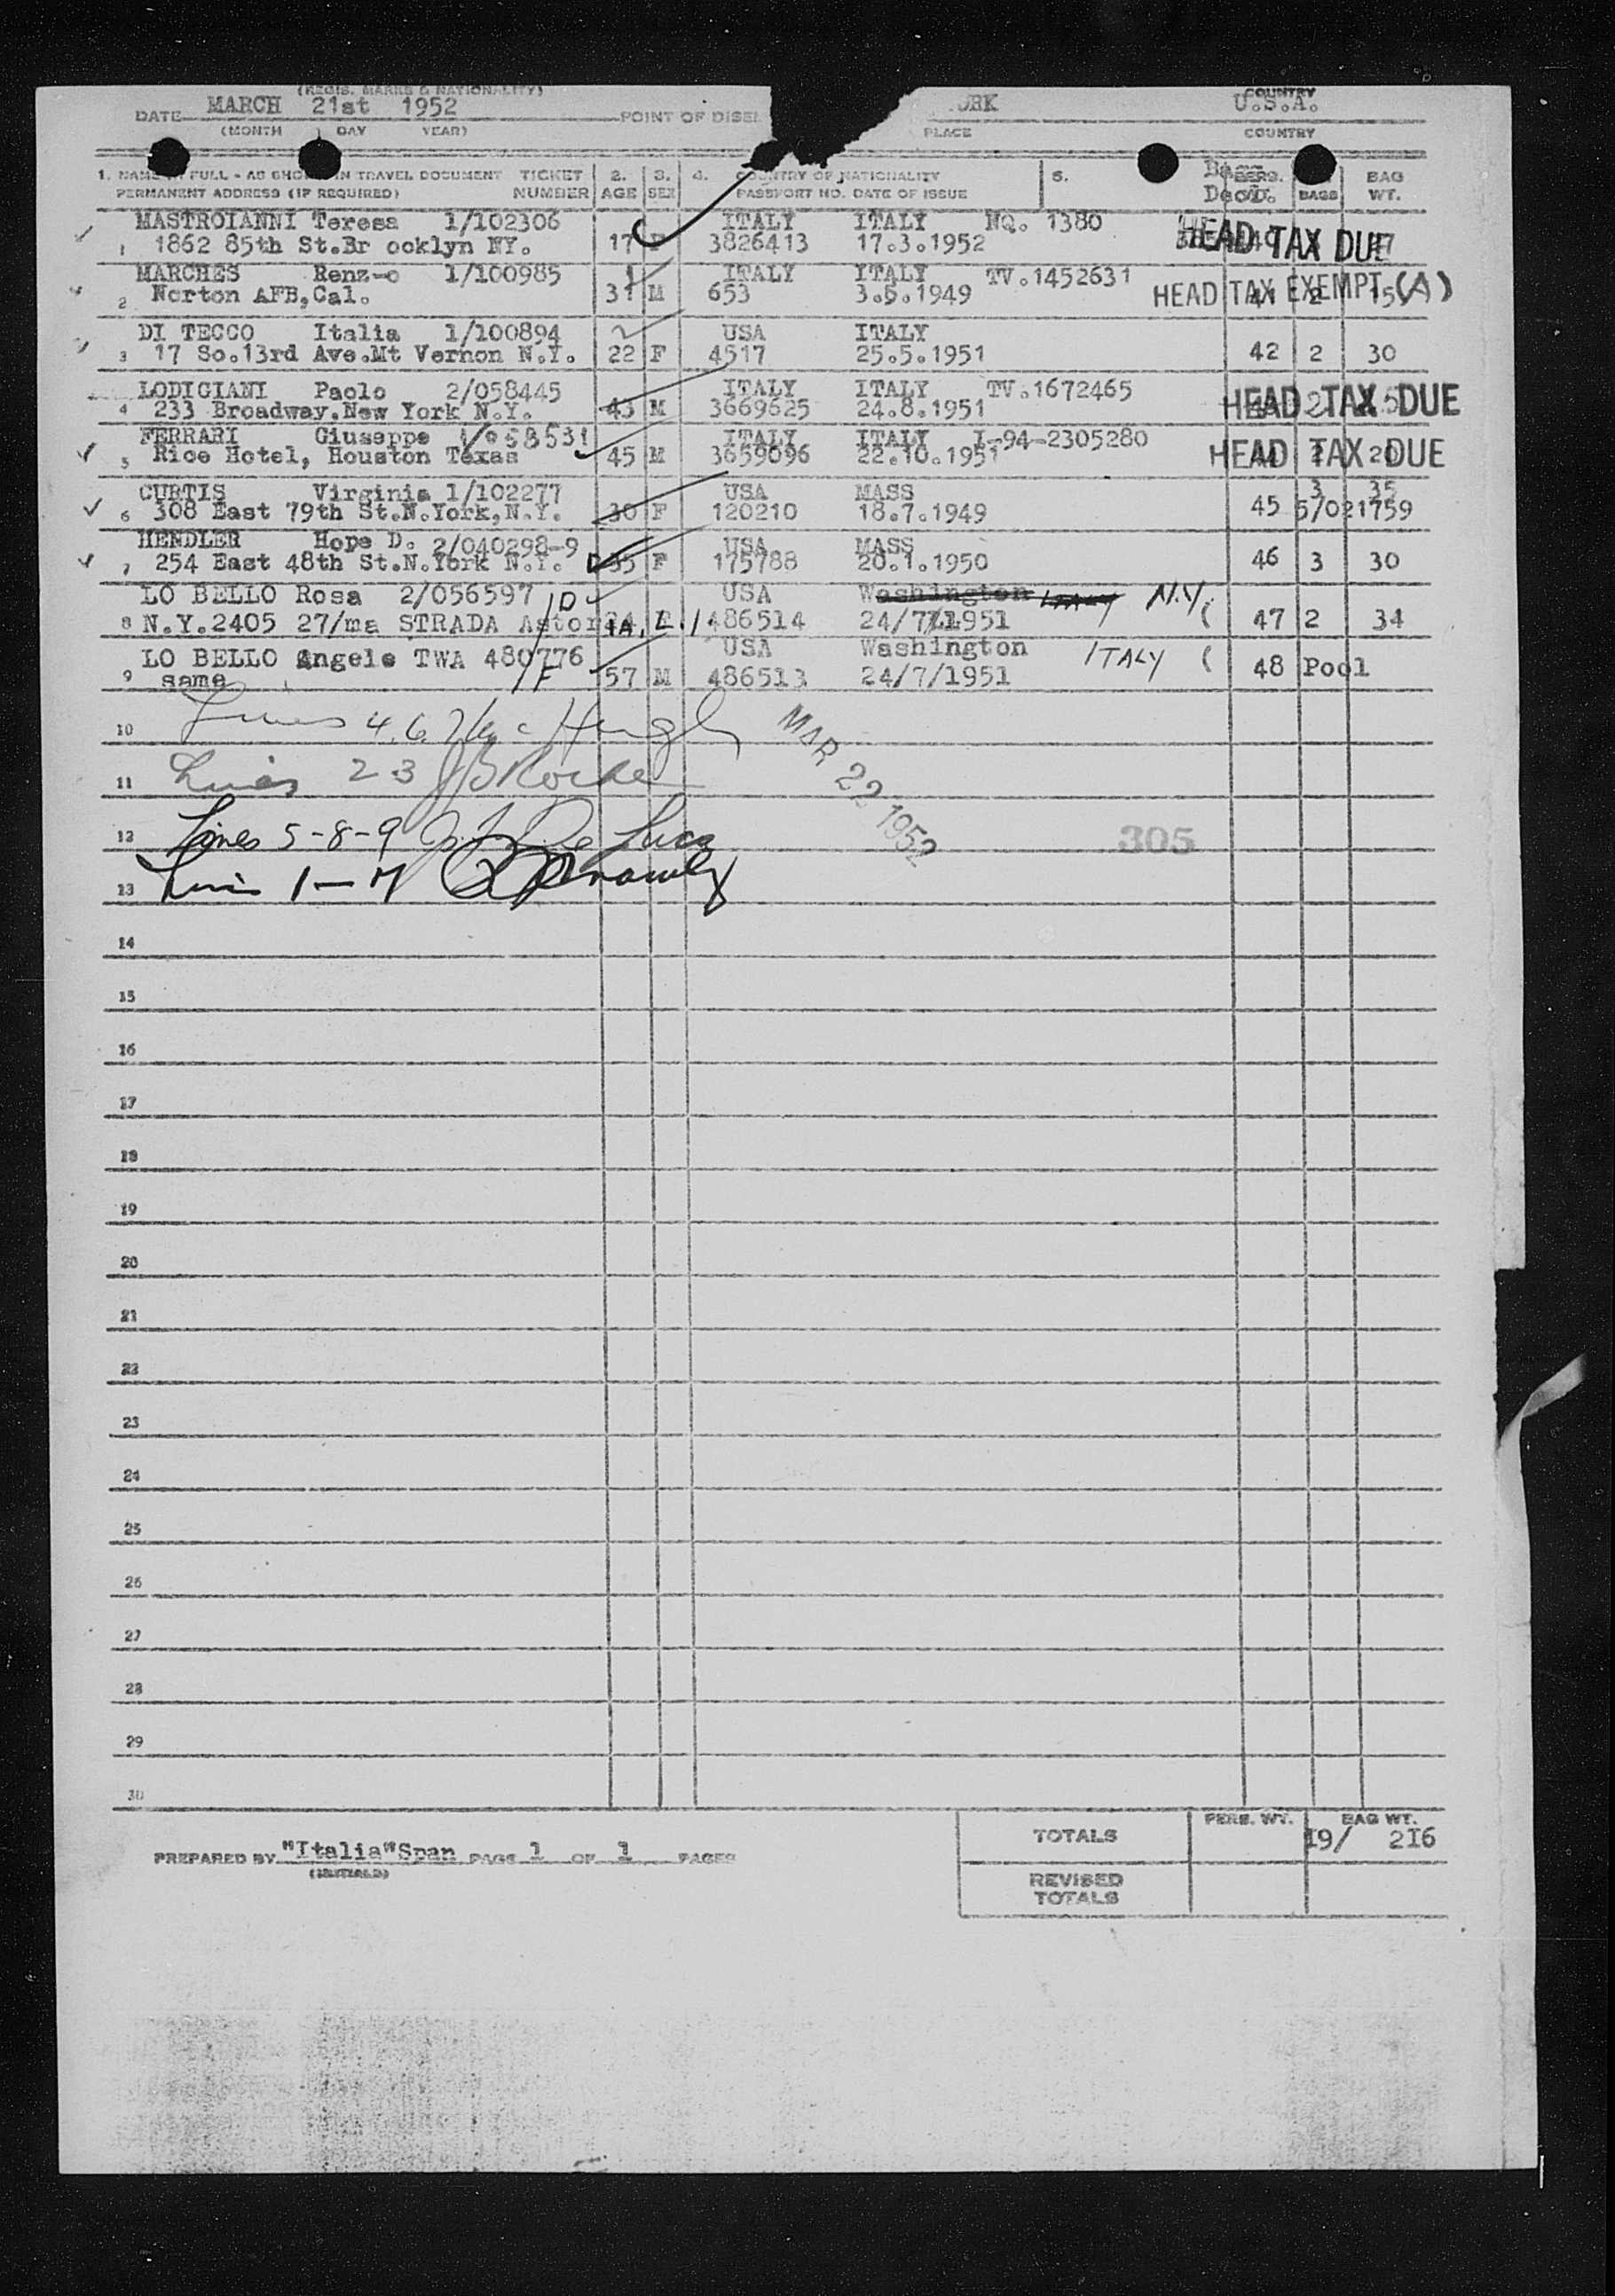 (REGIS. MARKS & NATIONALITY) COUNTRY
DATE MARCH 21st 1952 POINT OF DISE ORK U.S.A.
(MONTH DAY YEAR) PLACE COUNTRY
1. NAME FULL - AS SHO IN TRAVEL DOCUMENT TICKET 2. 3. 4. COUNTRY OF NATIONALITY 5. Bagg. PERS. BAG
PERMANENT ADDRESS (IF REQUIRED) NUMBER AGE SEX PASSPORT NO. DATE OF ISSUE Decl. BAGS WT.
MASTROIANNI Teresa 1/102306 ITALY ITALY NQ. 1380
1 1862 85th St.Br ocklyn NY. 17 F 3826413 17.3.1952 HEAD TAX DUE
MARCHES Renz-o 1/100985 ITALY ITALY TV.1452631
2 Norton AFB,Cal. 31 M 653 3.5.1949 HEAD TAX EXEMPT (A) 41 2 15
DI TECCO Italia 1/100894 USA ITALY
3 17 So.13rd Ave.Mt Vernon N.Y. 22 F 4517 25.5.1951 42 2 30
LODIGIANI Paolo 2/058445 ITALY ITALY TV.1672465
4 233 Broadway.New York N.Y. 43 M 3669625 24.8.1951 HEAD TAX DUE
FERRARI Giuseppe 1/058531 ITALY ITALY I-94-2305280
5 Rice Hotel, Houston Texas 45 M 3659096 22.10.1951 HEAD TAX DUE 20
CURTIS Virginia 1/102277 USA MASS 3 35
6 308 East 79th St.N.York,N.Y. 30 F 120210 18.7.1949 45 5/021759
HENDLER Hope D. 2/040298-9 USA MASS
7 254 East 48th St.N.York N.Y. D 35 F 175788 20.1.1950 46 3 30
LO BELLO Rosa 2/056597 D USA Washington ITALY N.Y. (
8 N.Y.2405 27/ma STRADA Astoria 486514 24/7/1951 47 2 34
LO BELLO Angelo TWA 480776 USA Washington ITALY (
9 same F 57 M 486513 24/7/1951 48 Pool
10 Lines 4.6. Mc Hugh
MAR 22 1952
11 Lines 2 3 JB Rocke
12 Lines 5-8-9 De Luca 305
13 Lines 1-7
14
15
16
17
18
19
20
21
22
23
24
25
26
27
28
29
30
TOTALS PERS. WT. BAG WT.
19/ 216
PREPARED BY "Italia"Span PAGE 1 OF 1 PAGES
(INITIALS)
REVISED
TOTALS